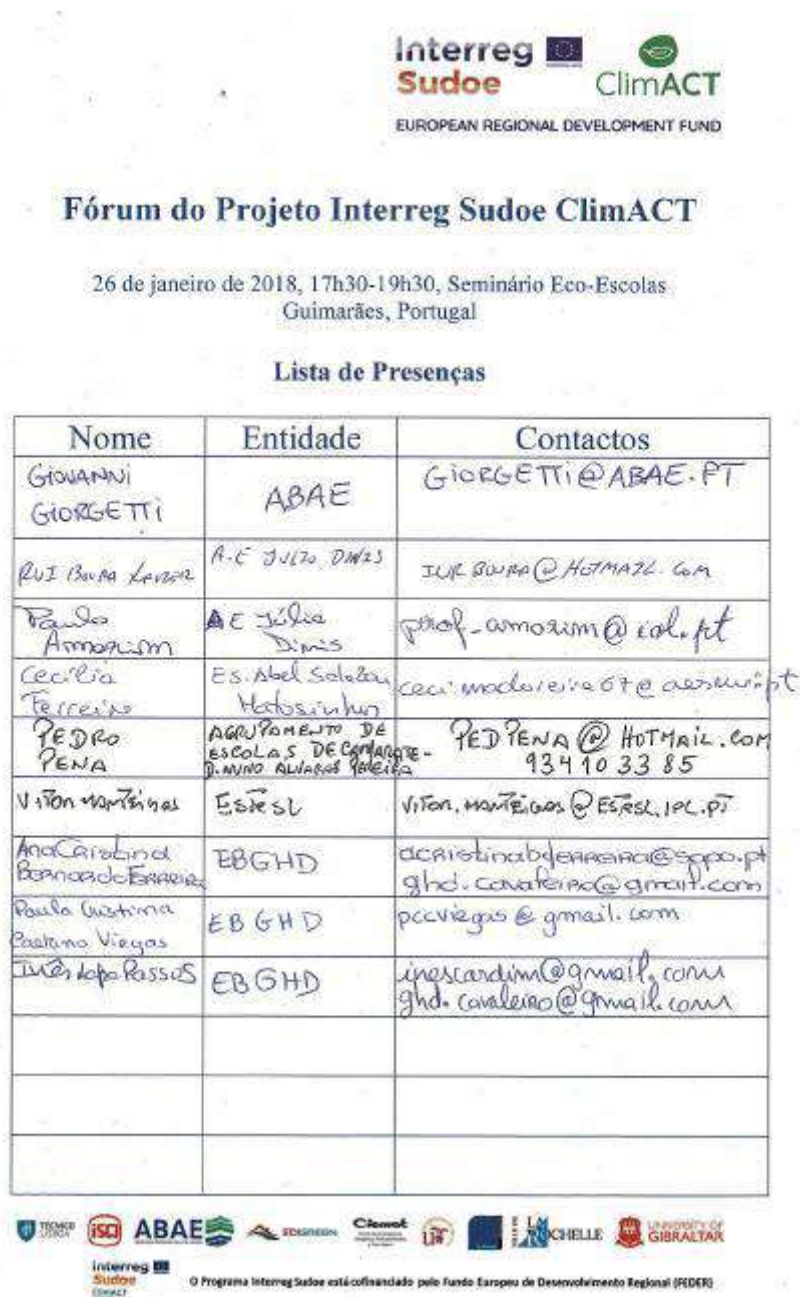 Interreg
Sudoe
ClimACT
EUROPEAN REGIONAL DEVELOPMENT FUND
Fórum do Projeto Interreg Sudoe ClimACT
26 de janeiro de 2018, 17h30-19h30, Seminário Eco-Escolas
Guimarães, Portugal
Lista de Presenças
Nome Entidade Contactos
GIOVANNI
GIORGETTI
ABAE
GIORGETTI@ABAE.PT
RUI
A.E JULIO DINIS
@HOTMAIL.COM
Paulo
Amorim
AE Júlio
Dinis
prof_amorim@iol.pt
Cecília
Ferreira
Es. Abel Salazar
Matosinhos
PEDRO
PENA
AGRUPAMENTO DE
ESCOLAS DE CAMARATE-
D. NUNO ALVARES PEREIRA
PEDPENA@HOTMAIL.COM
934103385
VITOR MANTEIGAS
ESTESL
VITOR.MANTEIGAS@ESTESL.IPL.PT
Ana Cristina
Bernardo Ferreira
EBGHD
acristinabferreira@sapo.pt
ghd.cavaleiro@gmail.com
Paula Cristina
Caetano Viegas
EBGHD
pccviegas@gmail.com
Inês Lopo Passos
EBGHD
inescardim@gmail.com
ghd.cavaleiro@gmail.com
TÉCNICO
LISBOA
ISQ
ABAE
EDIGREEN
Ciemat
LA ROCHELLE
UNIVERSITY OF
GIBRALTAR
Interreg
Sudoe
ClimACT
O Programa Interreg Sudoe está cofinanciado pelo Fundo Europeu de Desenvolvimento Regional (FEDER)